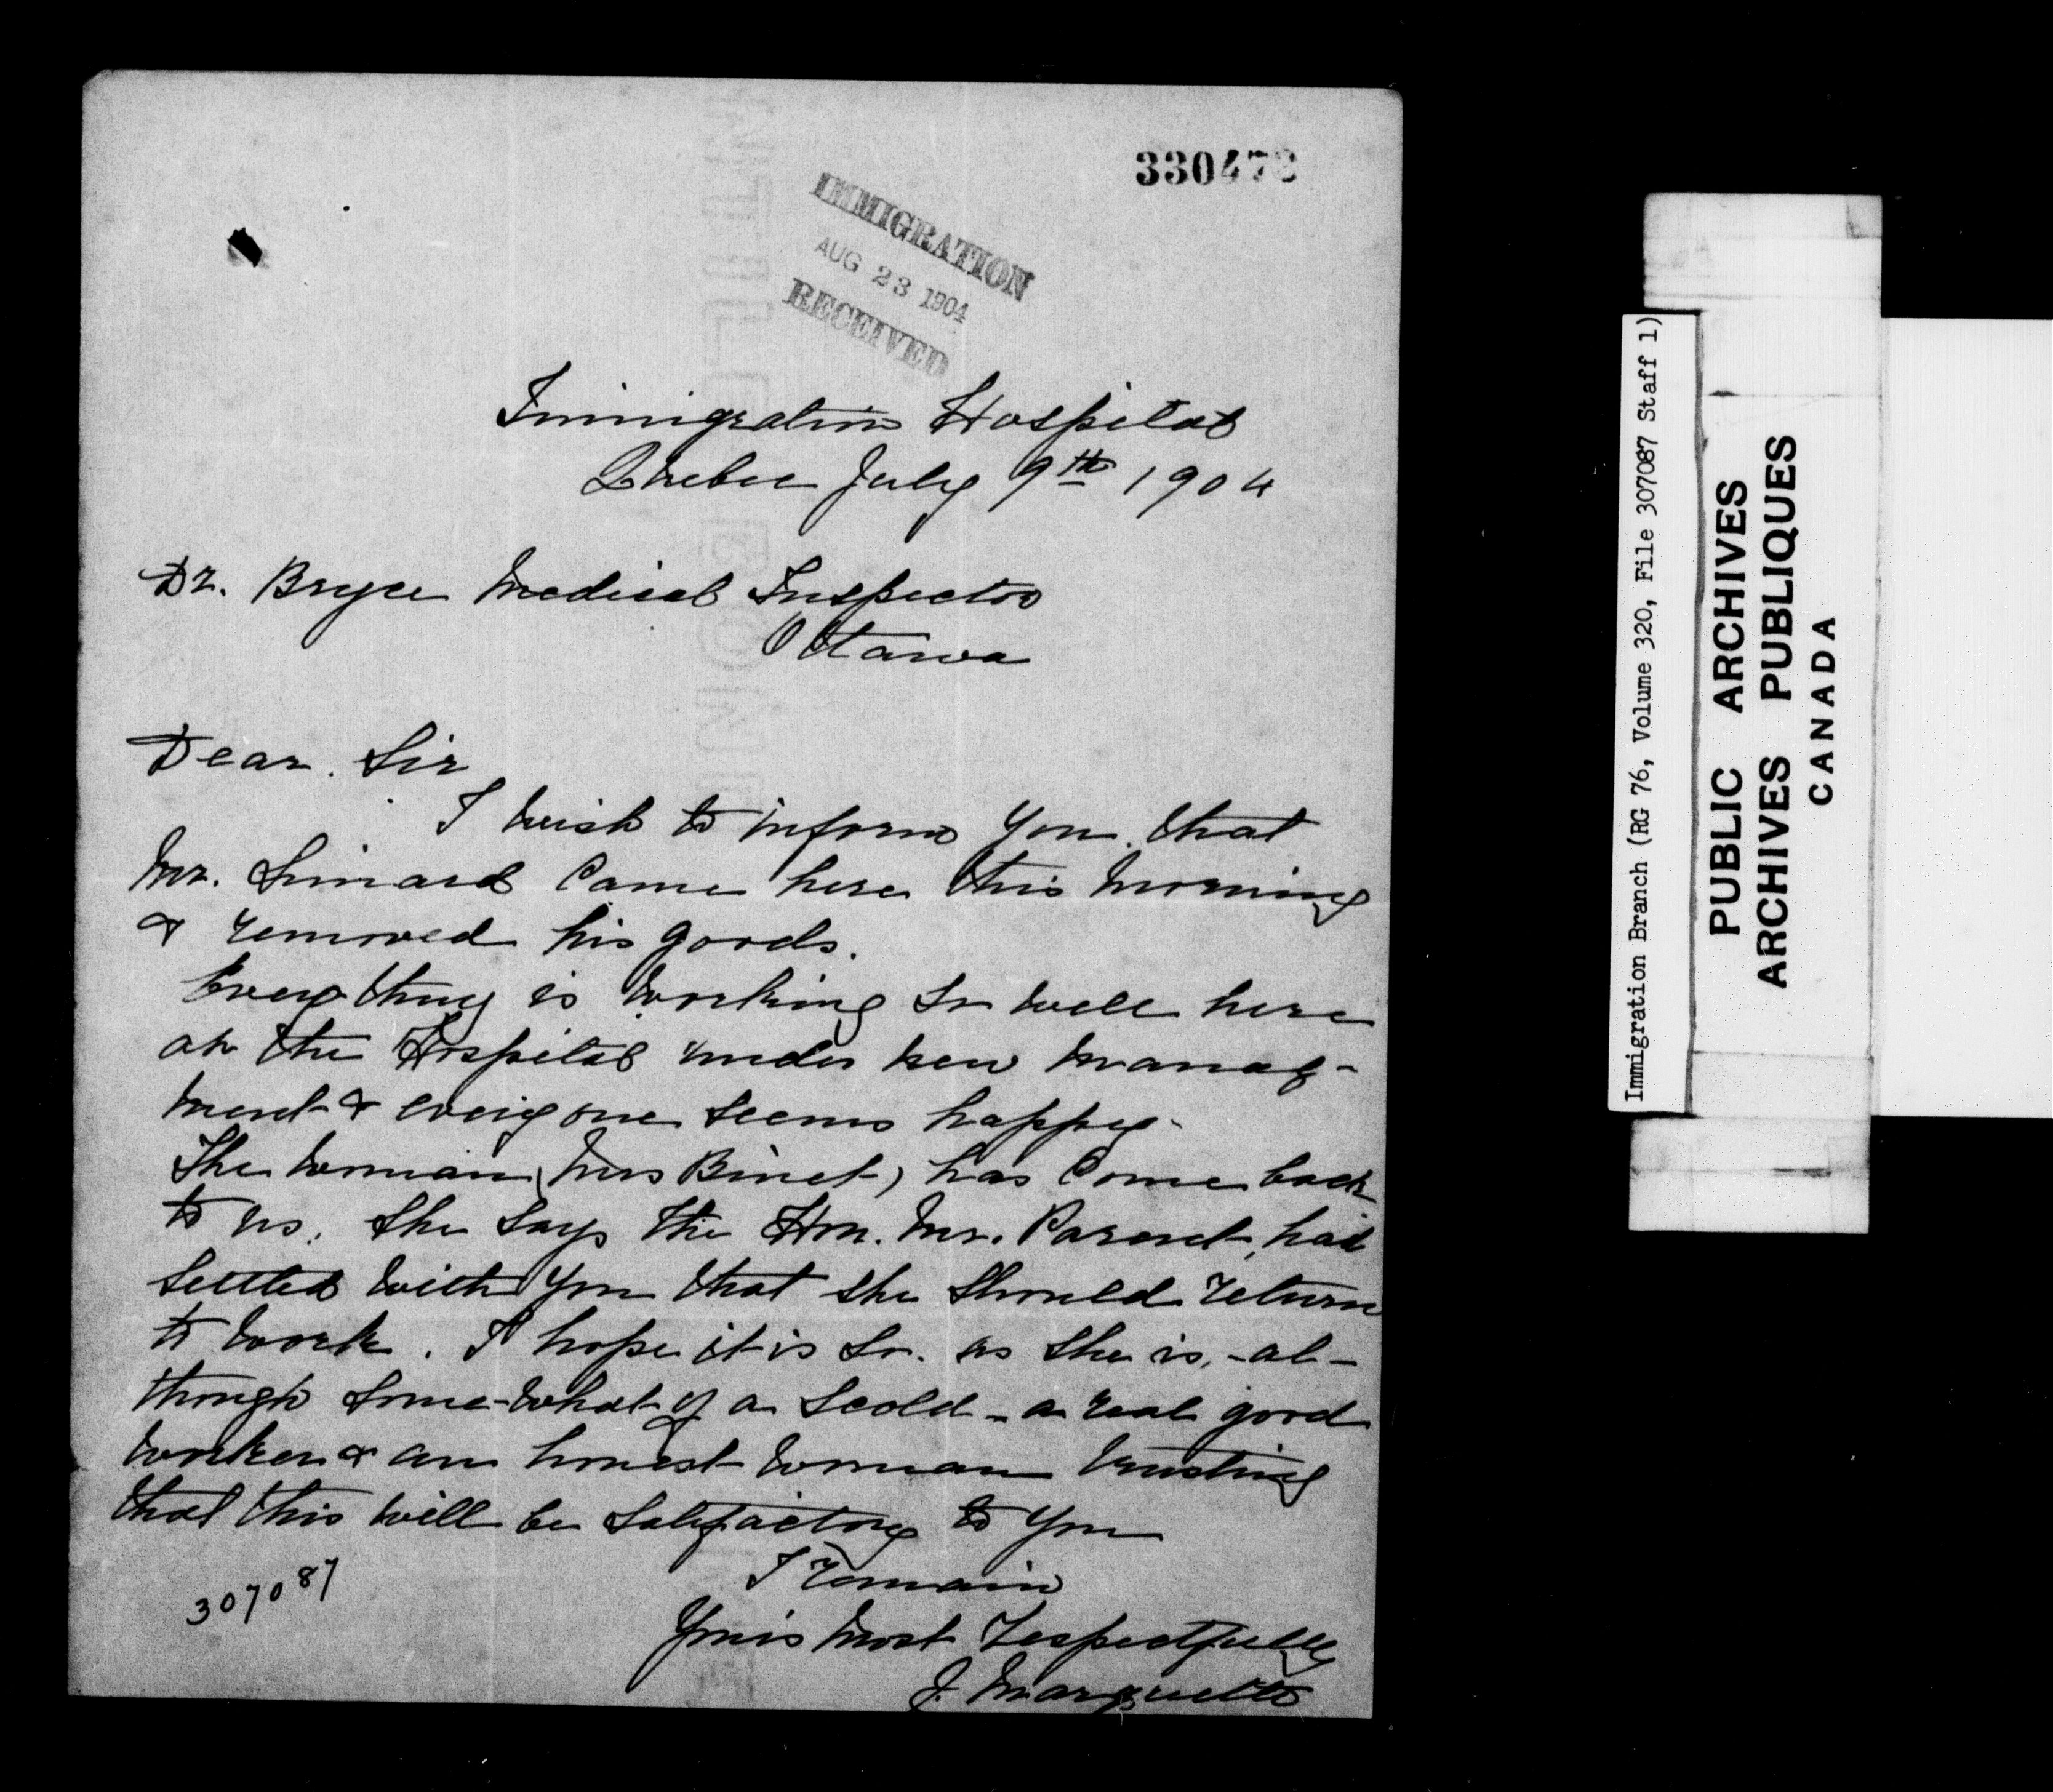 330472
IMMIGRATION
AUG 23 1904
RECEIVED
Immigration Hospital
Quebec July 9th 1904
Dr. Bryce Medical Inspector
Ottawa
Dear. Sir
I wish to inform You. that
Mr. Simard Came here this Morning
& removed his goods.
Everything is working so well here
at the Hospital under new Manag-
ment & everyone seems happy.
The woman (Mrs Binet) has Come back
to us. She says the Hon. Mr. Parent, had
settled with You that she should return
to work. I hope it is so. as she is, -al-
though some-what of a scold - a real good
worker & an honest woman trusting
that this will be satisfactory to You
I remain
Yours Most respectfully
J. Marquette
307087
Immigration Branch (RG 76, Volume 320, File 307087 Staff 1)
PUBLIC ARCHIVES
ARCHIVES PUBLIQUES
CANADA